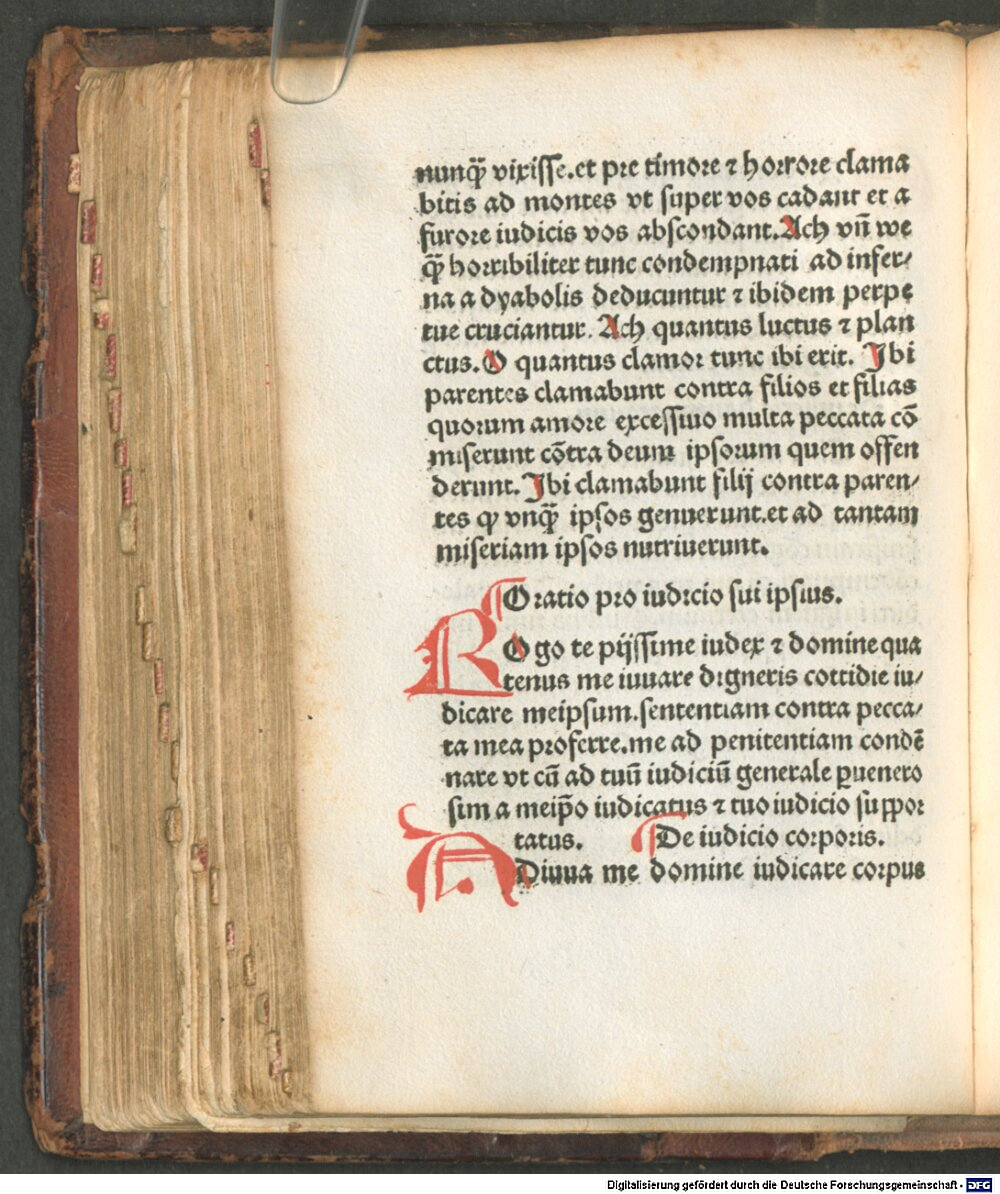 nunq̄ vixisse.et pre timore ⁊ horrore clama
bitis ad montes vt super vos cadant et a
furore iudicis vos abscondant.Ach vn̄ we
q̄ horribiliter tunc condempnati ad infer⸗
na a dyabolis deducuntur ⁊ ibidem perpe
tue cruciantur. Ach quantus luctus ⁊ plan
ctus.O quantus clamor tunc ibi erit. Ibi
parentes clamabunt contra filios et filias
quorum amore excessiuo multa peccata cō
miserunt cōtra deum ipsorum quem offen
derunt.Ibi clamabunt filij contra paren⸗
tes ꝙ vnq̄ ipsos genuerunt.et ad tantam
miseriam ipsos nutriuerunt.
¶Oratio pro iudicio sui ipsius.
ROgo te pijssime iudex ⁊ domine qua
tenus me iuuare digneris cottidie iu⸗
dicare meipsum.sententiam contra pecca⸗
ta mea proferre.me ad penitentiam condē
nare vt cū ad tuū iudiciū generale ꝑuenero
sim a meip̄o iudicatus ⁊ tuo iudicio suppor
tatus. ¶De iudicio corporis.
ADiuua me domine iudicare corpus
Digitalisierung gefördert durch die Deutsche Forschungsgemeinschaft - DFG